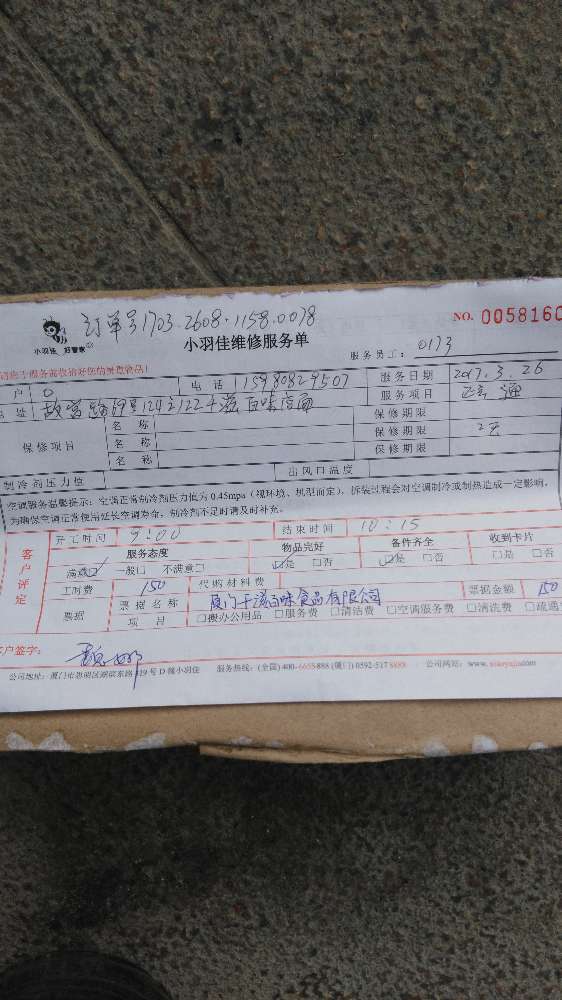 订单号1703.2608.1158.0078
小羽佳 好管家
小羽佳维修服务单
NO. 0058160
服务员工: 0173
户 电话 115980829507 服务日期 2017.3.26
址 故宫路69号124之122千滋百味店面 服务项目 通
保修项目 名称 保修期限
名称 保修期限
名称 保修期限
制冷剂压力值 出风口温度
空调服务温馨提示: 空调正常制冷剂压力值为0.45mpa (视环境、机型而定), 拆装过程会对空调制冷或制热造成一定影响,
为确保空调正常使用延长空调寿命, 制冷剂不足时请及时补充。
客户评定
开工时间 9:00 结束时间 10:15
服务态度 物品完好 备件齐全 收到卡片
满意☑ 一般□ 不满意□ ☑是 □否 ☑是 □否 □是 □否
工时费 150 代购材料费
票据 票据名称 厦门千滋百味食品有限公司 票据金额 150
项目 □搬办公用品 □服务费 □清洁费 □空调服务费 □清洗费 □疏通
客户签字:
公司地址: 厦门市思明区湖滨东路319号D栋小羽佳 服务热线: (全国) 400-6655888 (厦门) 0592-5178888 公司网站: www.xiaoyujia.com